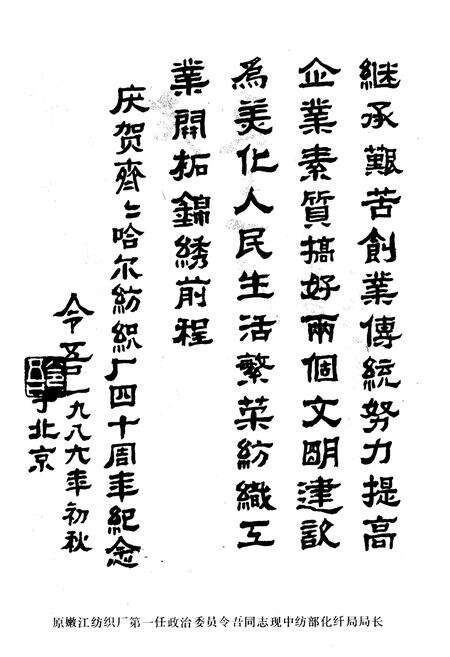 継承艱苦創業傳統努力提高
企業素質搞好兩個文明建設
為美化人民生活繁荣紡織工
業開拓錦綉前程
庆贺齊々哈尔紡織厂四十周年紀念
令吾一九八六年初秋
于北京
原嫩江纺织厂第一任政治委员令吾同志现中纺部化纤局局长